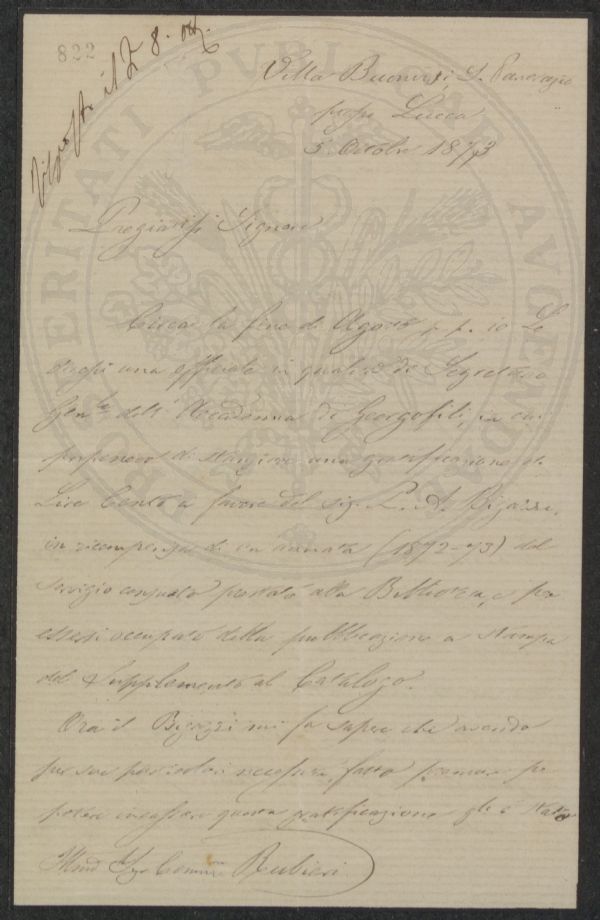 822
Risposto il dì 8. ott.
Villa Buonvisi, S. Pancrazio
presso Lucca
5. Ottobre 1873
Pregiatis.º Signore
Circa la fine di Agosto p. p. io Le
diressi una officiale in qualità di Segretario
Gen.le dell' Accademia de' Georgofili, in cui
proponevo di elargire una gratificazione di
Lire Cento a favore del sig. P. A. Bigazzi,
in ricompensa di un' annata (1872-73) del
servizio consueto prestato alla Biblioteca, e per
essersi occupato della pubblicazione a stampa
del Supplemento al Catalogo.
Ora il Bigazzi mi fa sapere che avendo
per sue particolari necessità, fatto premura per
potere incassare questa gratificazione gli è stato
Ill.mo Sig.r Comm.re Rubieri
PUBLICAE
PROSPERITATI
AUGENDAE